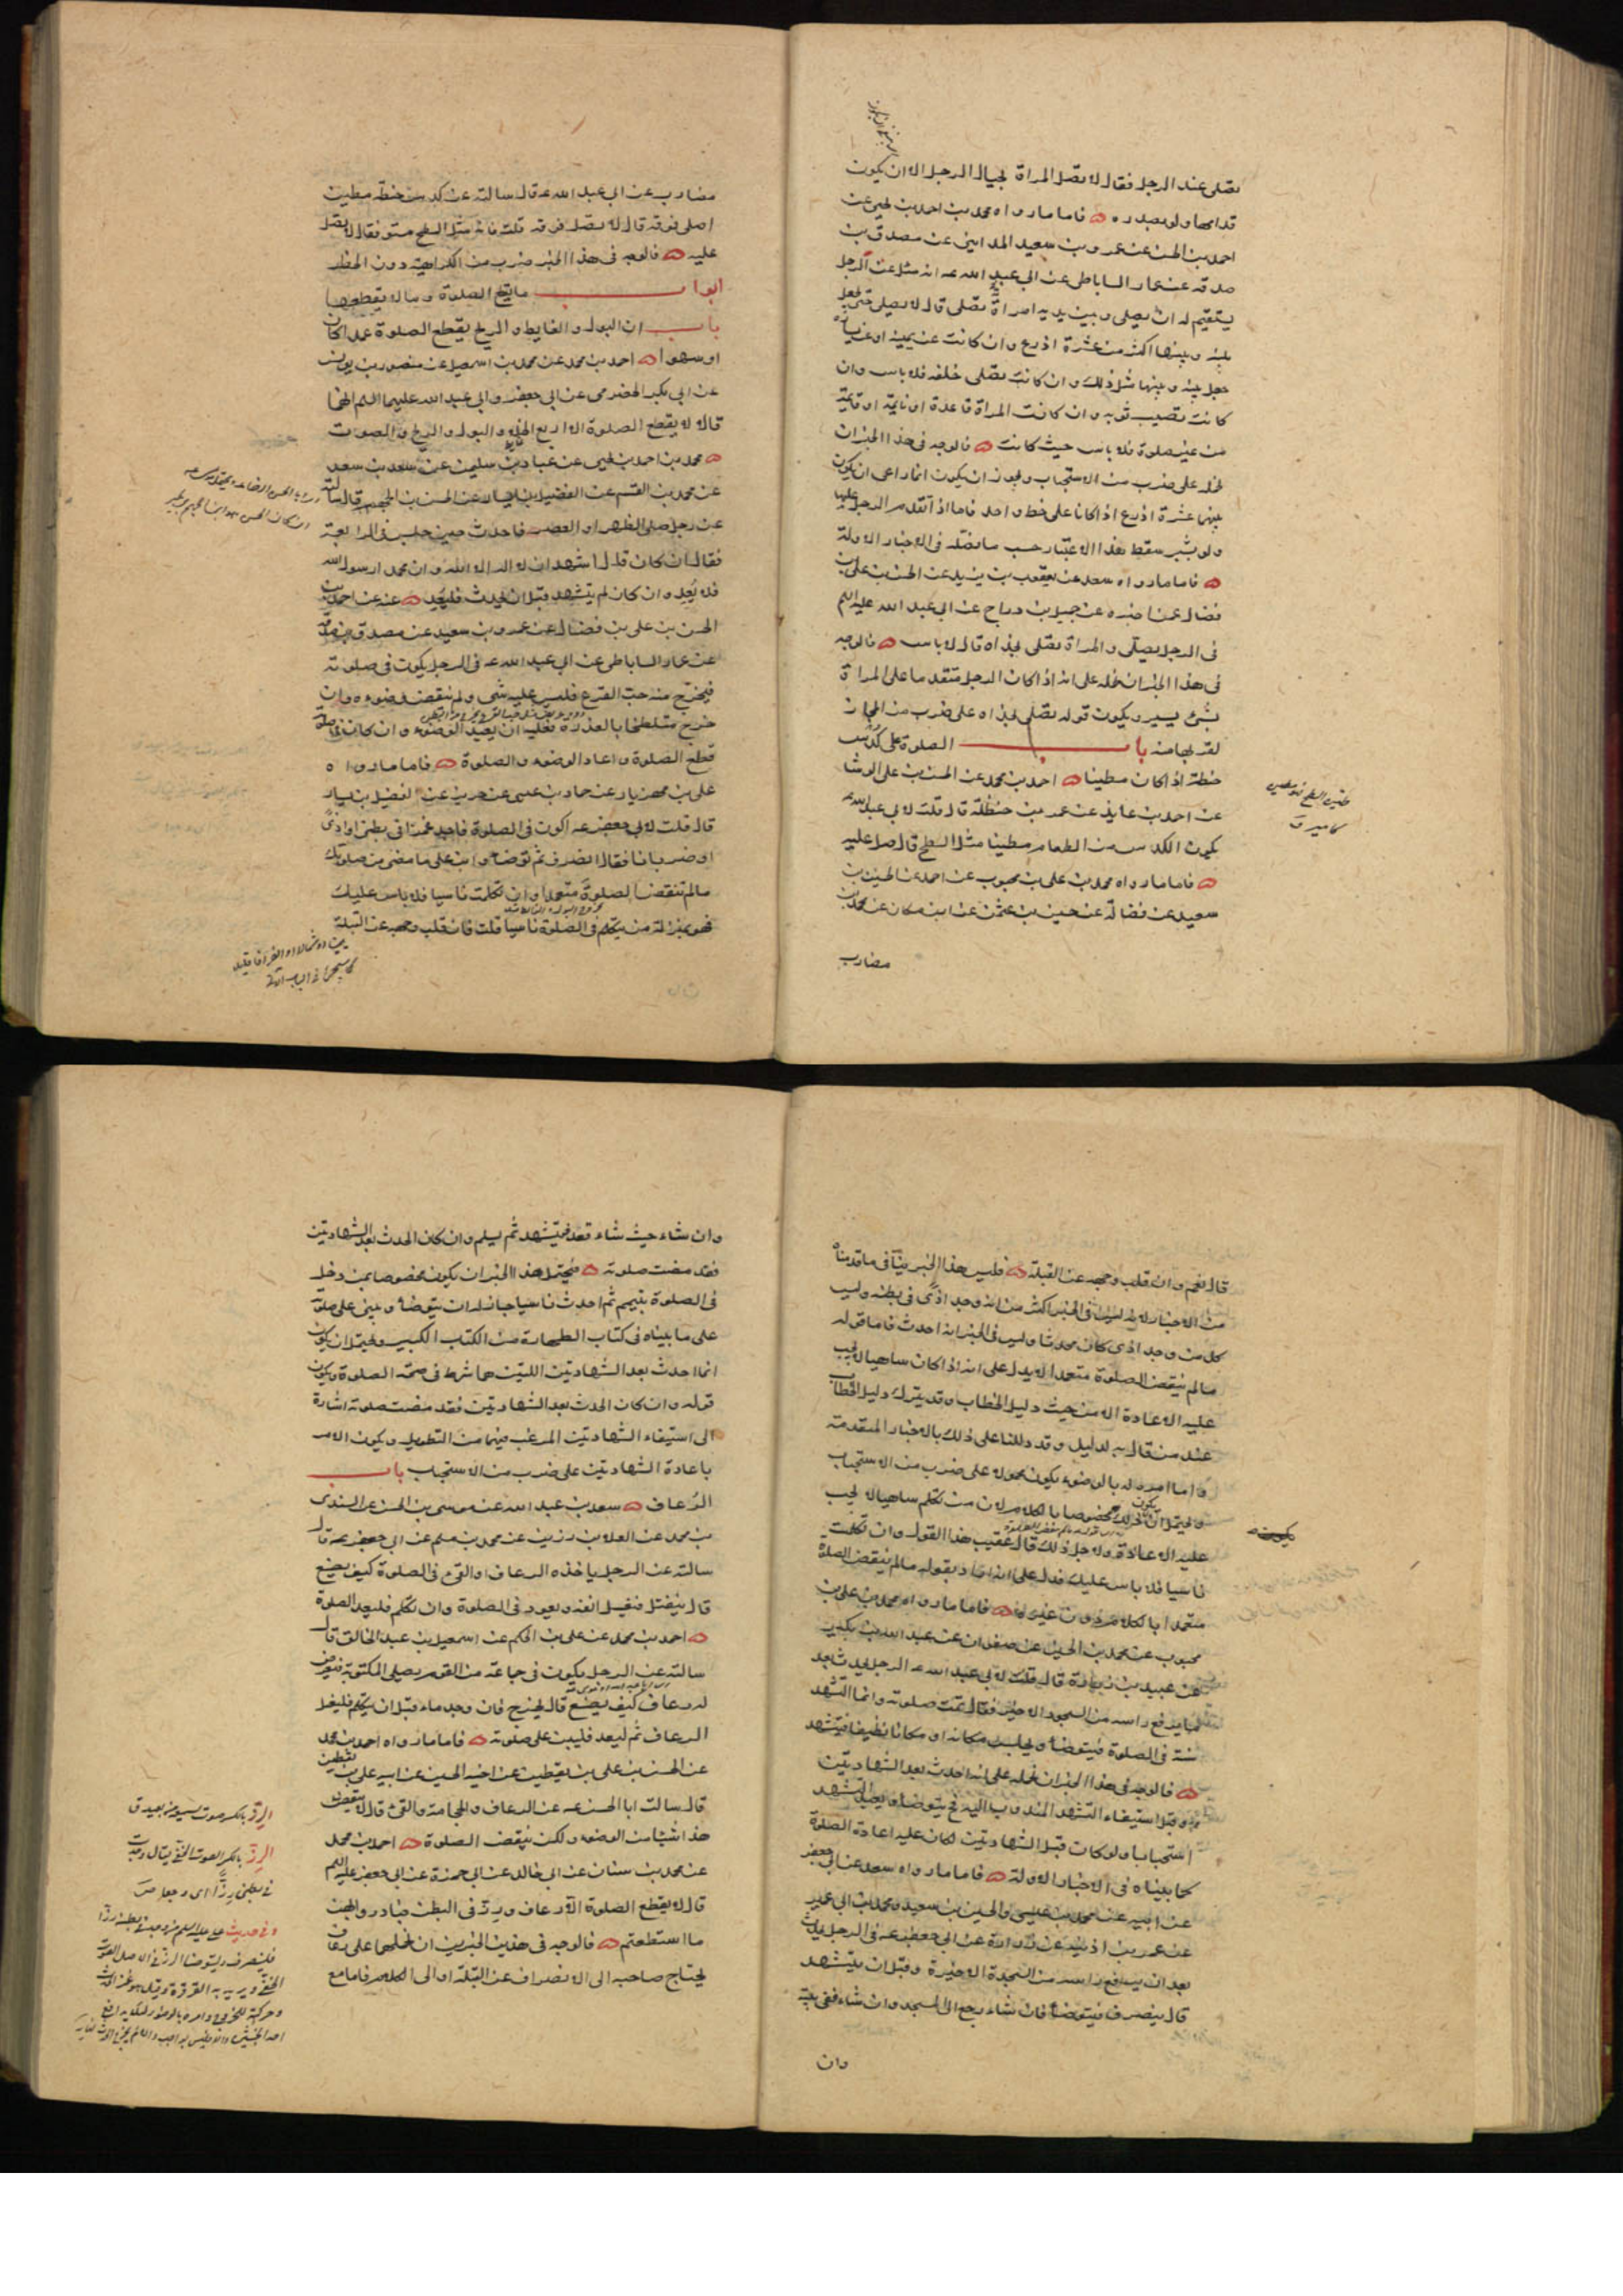 تصلى عند الرجل فقال لا تصل المراة بحيال الرجل الا ان يكون
قدامها ولو بصدره فاما ما رواه محمد بن احمد بن يحيى عن
احمد بن الحسن عن عمرو بن سعيد المدايني عن مصدق بن
صدقة عن عمار الساباطي عن ابي عبد الله عه انه سئل عن الرجل
يستقيم له ان يصلى وبين يديه امراة تصلى قال لا يصلى حتى يجعل
بينه وبينها اكثر من عشرة اذرع وان كانت عن يمينه او عن يساره
جعل بينه وبينها مثل ذلك وان كانت تصلى خلفه فلا باس وان
كانت تصيب ثوبه وان كانت المراة قاعدة او نايمة او قايمة
من غير صلوة فلا باس حيث كانت فالوجه في هذا الخبر ان
نحمله على ضرب من الاستحباب ويجوز ان يكون انما راعى ان يكون
بينهما عشرة اذرع اذا كانا على خط واحد فاما اذا تقدم الرجل عليها
ولو بشبر سقط هذا الاعتبار حسب ما فصله في الاخبار الاولة
فاما ما رواه سعد عن يعقوب بن يزيد عن الحسن بن على بن
فضال عمن اخبره عن جميل بن دراج عن ابي عبد الله عليه السلم
في الرجل يصلى والمراة تصلى بحذاه قال لا باس فالوجه
في هذا الخبر ان نحمله على انه اذا كان الرجل متقدما على المراة
بشئ يسير ويكون قوله تصلى بحذاه على ضرب من المجاز
لقربها منه باب الصلوة على كدس
حنطة اذا كان مطينا احمد بن محمد عن الحسن بن على الوشا
عن احمد بن عايذ عن عمر بن حنظلة قال قلت لابي عبد الله عه
يكون الكدس من الطعام مطينا مثل السطح قال صل عليه
فاما ما رواه محمد بن على بن محبوب عن احمد عن الحسين بن
سعيد عن فضالة عن حسين بن عثمن عن ابن مسكان عن محمد بن
مضارب
مضارب عن ابي عبد الله عه قال سالته عن كدس حنطة مطين
اصلى فوقه قال لا تصل فوقه قلت فانه مثل السطح مستو فقال لا تصل
عليه فالوجه في هذا الخبر ضرب من الكراهية دون الحظر
ابواب ما يقطع الصلوة وما لا يقطعها
باب ان البول والغايط والريح يقطع الصلوة عمدا كان
او سهوا احمد بن محمد عن محمد بن اسمعيل عن منصور بن يونس
عن ابي بكر الحضرمى عن ابي جعفر وابي عبد الله عليهما السلم انهما
قالا لا يقطع الصلوة الا اربع الخلاء والبول والريح والصوت
محمد بن احمد بن يحيى عن عباد بن سليمن عن سعد بن سعد
عن محمد بن القسم عن الفضيل بن يسار عن الحسن بن الجهم قال سالته
عن رجل صلى الظهر او العصر فاحدث حين جلس في الرابعة
فقال ان كان قال اشهد ان لا اله الا الله وان محمدا رسول الله
فلا يعد وان كان لم يتشهد قبل ان يحدث فليعد عنه عن احمد بن
الحسن بن على بن فضال عن عمرو بن سعيد عن مصدق بن صدقة
عن عمار الساباطى عن ابي عبد الله عه في الرجل يكون في صلوته
فيخرج منه حب القرع فليس عليه شئ ولم ينقض وضوءه وان
خرج متلطخا بالعذرة فعليه ان يعيد الوضوء وان كان في صلوته
قطع الصلوة واعاد الوضوء والصلوة فاما ما رواه
على بن مهزيار عن حماد بن عيسى عن حريز عن الفضيل بن يسار
قال قلت لابي جعفر عه اكون في الصلوة فاجد غمزا في بطنى او اذى
او ضربانا فقال انصرف ثم توضا وابن على ما مضى من صلوتك
ما لم تنقض الصلوة متعمدا وان تكلمت ناسيا فلا باس عليك
فهو بمنزلة من يتكلم في الصلوة ناسيا قلت فان قلب وجهه عن القبلة
قال نعم وان قلب وجهه عن القبلة فليس هذا الخبر ينافى ما قدمناه
من الاخبار لانه ليس في الخبر اكثر من انه وجد اذى في بطنه وليس
كل من وجد اذى كان محدثا وليس في الخبر انه احدث فاما قوله
ما لم ينقض الصلوة متعمدا لا يدل على انه اذا كان ساهيا لا يجب
عليه الاعادة الا من حيث دليل الخطاب وقد يترك دليل الخطاب
عند من قال به لدليل وقد دللنا على ذلك بالاخبار المتقدمة
واما امره له بالوضوء يكون محمولا على ضرب من الاستحباب
ويحتمل ان يكون ذلك مخصوصا بالكلام لان من تكلم ساهيا لا يجب
عليه الاعادة ولاجل ذلك قال عقيب هذا القول وان تكلمت
ناسيا فلا باس عليك فدل على انه اراد بقوله ما لم ينقض الصلوة
متعمدا بالكلام دون غيره فاما ما رواه محمد بن على بن
محبوب عن محمد بن الحسين عن صفوان عن عبد الله بن بكير
عن عبيد بن زرارة قال قلت لابي عبد الله عه الرجل يحدث بعد
ما يرفع راسه من السجود الاخير فقال تمت صلوته وانما التشهد
سنة في الصلوة فيتوضا ويجلس مكانه او مكانا نظيفا فيتشهد
فالوجه في هذا الخبر ان نحمله على انه احدث بعد الشهادتين
وقبل استيفاء التشهد المندوب اليه فحينئذ يتوضا ويعيد التشهد
استحبابا ولو كان قبل الشهادتين لكان عليه اعادة الصلوة
كما بيناه في الاخبار الاولة فاما ما رواه سعد عن ابي جعفر
عن ابيه عن محمد بن عيسى والحسين بن سعيد ومحمد بن ابي عمير
عن عمر بن اذينه عن زرارة عن ابي جعفر عه في الرجل يحدث
بعد ان يرفع راسه من السجدة الاخيرة وقبل ان يتشهد
قال ينصرف فيتوضا فان شاء رجع الى المسجد وان شاء ففى بيته
وان
وان شاء حيث شاء قعد فيتشهد ثم يسلم وان كان الحدث بعد الشهادتين
فقد مضت صلوته فيحتمل هذا الخبر ان يكون مخصوصا بمن دخل
في الصلوة بتيمم ثم احدث ناسيا جاز له ان يتوضا ويبنى على صلوته
على ما بيناه في كتاب الطهارة من الكتاب الكبير ويحتمل ان يكون
انما احدث بعد الشهادتين اللتين هما شرط في صحة الصلوة ويكون
قوله وان كان الحدث بعد الشهادتين فقد مضت صلوته اشارة
الى استيفاء الشهادتين المرغب فيهما من التطويل ويكون الامر
باعادة الشهادتين على ضرب من الاستحباب باب
الرعاف سعد بن عبد الله عن موسى بن الحسن عن السندى
بن محمد عن العلا بن رزين عن محمد بن مسلم عن ابي جعفر عه قال
سالته عن الرجل ياخذه الرعاف او القئ في الصلوة كيف يصنع
قال ينفتل فيغسل انفه ويعود في الصلوة وان تكلم فليعد الصلوة
احمد بن محمد عن على بن الحكم عن اسمعيل بن عبد الخالق قال
سالته عن الرجل يكون في جماعة من القوم يصلى المكتوبة فيعرض
له رعاف كيف يصنع قال يخرج فان وجد ماء قبل ان يتكلم فليغسل
الرعاف ثم ليعد فليبن على صلوته فاما ما رواه احمد بن محمد
عن الحسن بن على بن يقطين عن اخيه الحسين عن ابيه على بن يقطين
قال سالت ابا الحسن عه عن الرعاف والحجامة والقئ قال لا ينقض
هذا شيئا من الوضوء ولكن ينقض الصلوة احمد بن محمد
عن محمد بن سنان عن ابي خالد عن ابي حمزة عن ابي جعفر عليه السلم
قال لا يقطع الصلوة الا رعاف ورز في البطن فبادروا بهن
ما استطعتم فالوجه في هذين الخبرين ان نحملهما على رعاف
يحتاج صاحبه الى الانصراف عن القبلة او الى الكلام فاما مع
الرز بالكسر
وفي حديث على عليه السلم من وجد في بطنه رزا
فلينصرف وليتوضا